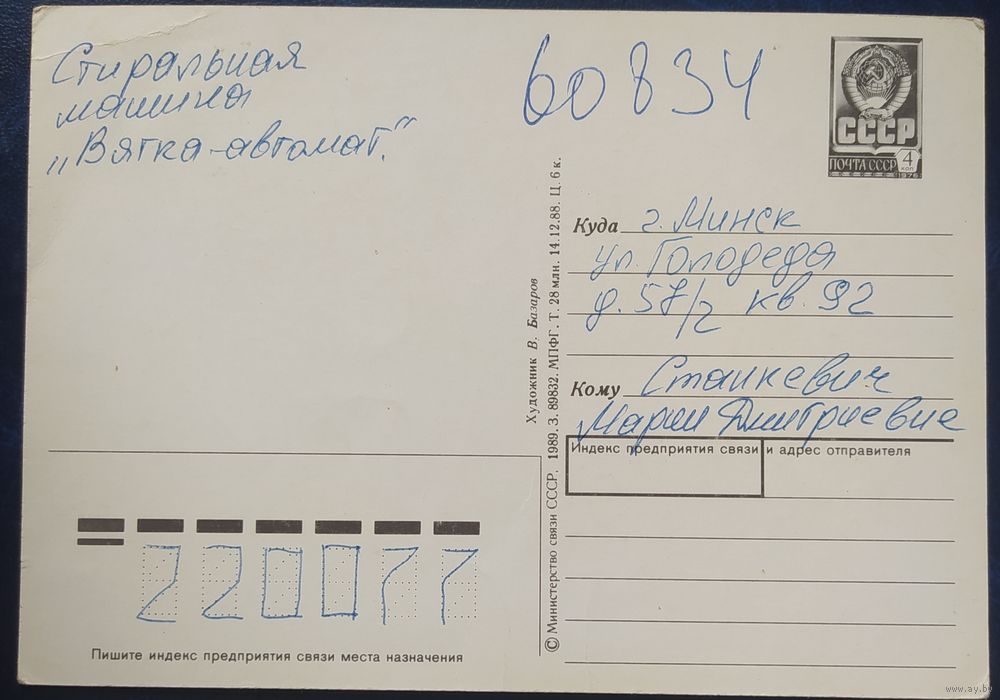 Стиральная
машина
„Вятка-автомат."
60834
СССР
ПОЧТА СССР
4
КОП
1976
Куда г. Минск
ул Голодеда
д. 57/2 кв. 92
Кому Станкевич
Марии Дмитриевне
Индекс предприятия связи и адрес отправителя
Художник В. Базаров
© Министерство связи СССР. 1989. З. 89832. МПФГ. Т. 28 млн. 14.12.88. Ц. 6 к.
220077
Пишите индекс предприятия связи места назначения
www.ay.by